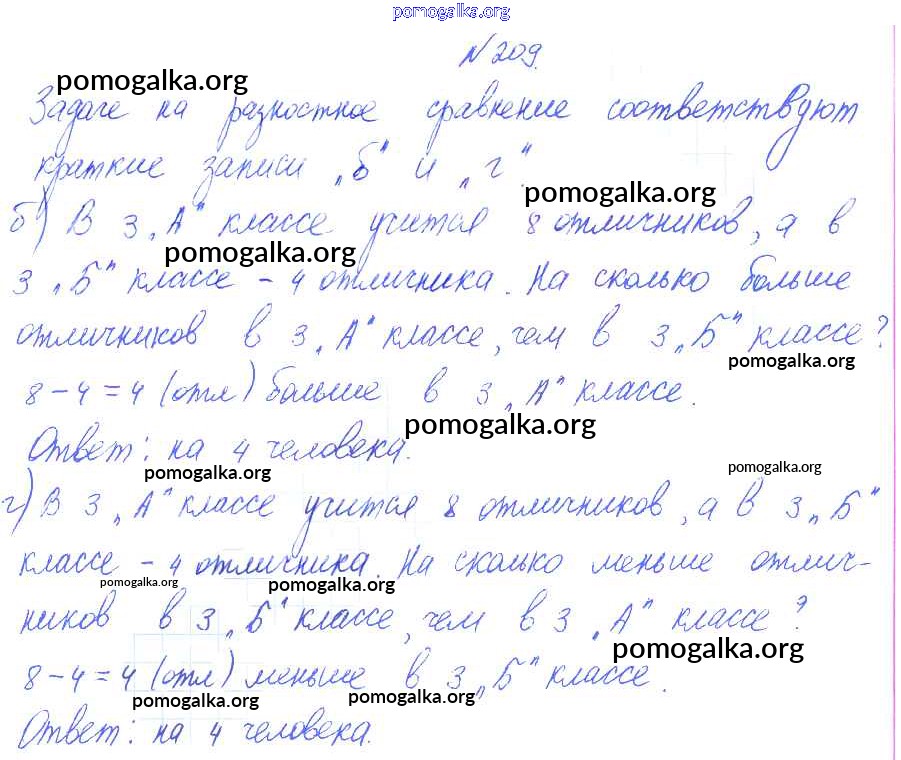 pomogalka.org
N 209.
pomogalka.org
Задаче на разностное сравнение соответствуют
краткие записи „б" и „г"
pomogalka.org
б) В 3 „А" классе учится 8 отличников, а в
pomogalka.org
3 „Б" классе - 4 отличника. На сколько больше
отличников в 3 „А" классе, чем в 3 „Б" классе?
pomogalka.org
8 - 4 = 4 (отл) больше в 3 „А" классе.
pomogalka.org
Ответ: на 4 человека.
pomogalka.org
pomogalka.org
г) В 3 „А" классе учится 8 отличников, а в 3 „Б"
классе - 4 отличника. На сколько меньше отлич-
pomogalka.org
pomogalka.org
ников в 3 „Б" классе, чем в 3 „А" классе?
pomogalka.org
8 - 4 = 4 (отл) меньше в 3 „Б" классе.
pomogalka.org
pomogalka.org
Ответ: на 4 человека.